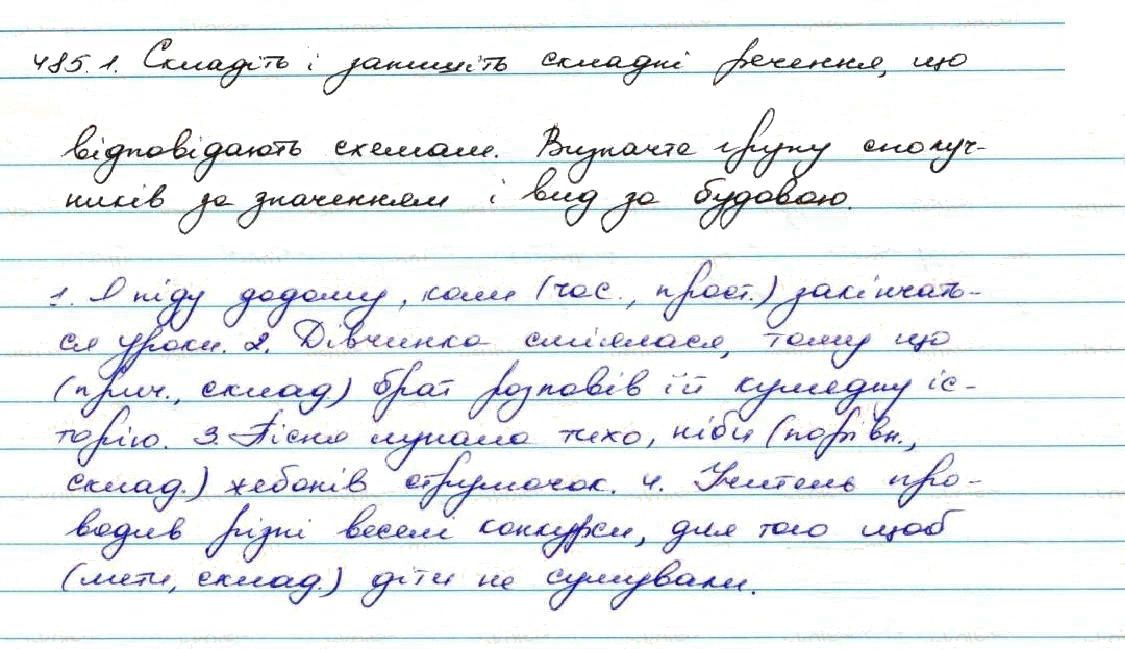 485.1. Складіть і запишіть складні речення, що
відповідають схемам. Визначте групу сполуч-
ників за значенням і вид за будовою.
1. Я піду додому, коли (час., прост.) закінчать-
ся уроки. 2. Дівчинка сміялася, тому що
(прич., склад.) брат розповів їй кумедну іс-
торію. 3. Пісня лунала тихо, ніби (порівн.,
склад.) жебонів струмочок. 4. Учитель про-
водив різні веселі конкурси, для того щоб
(мети, склад.) діти не сумували.